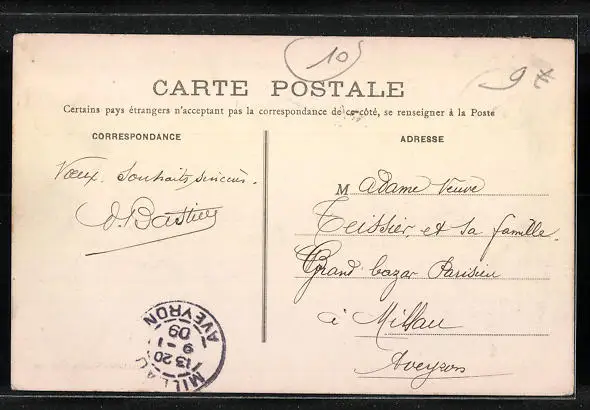 10
9
CARTE POSTALE
Certains pays étrangers n'acceptant pas la correspondance de ce côté, se renseigner à la Poste
CORRESPONDANCE
Vœux. Souhaits sincères.
ADRESSE
Madame Veuve
Teissier et sa famille.
Grand bazar Parisien
à Millau
Aveyron
MILLAU
13 20
9 - 1
09
AVEYRON